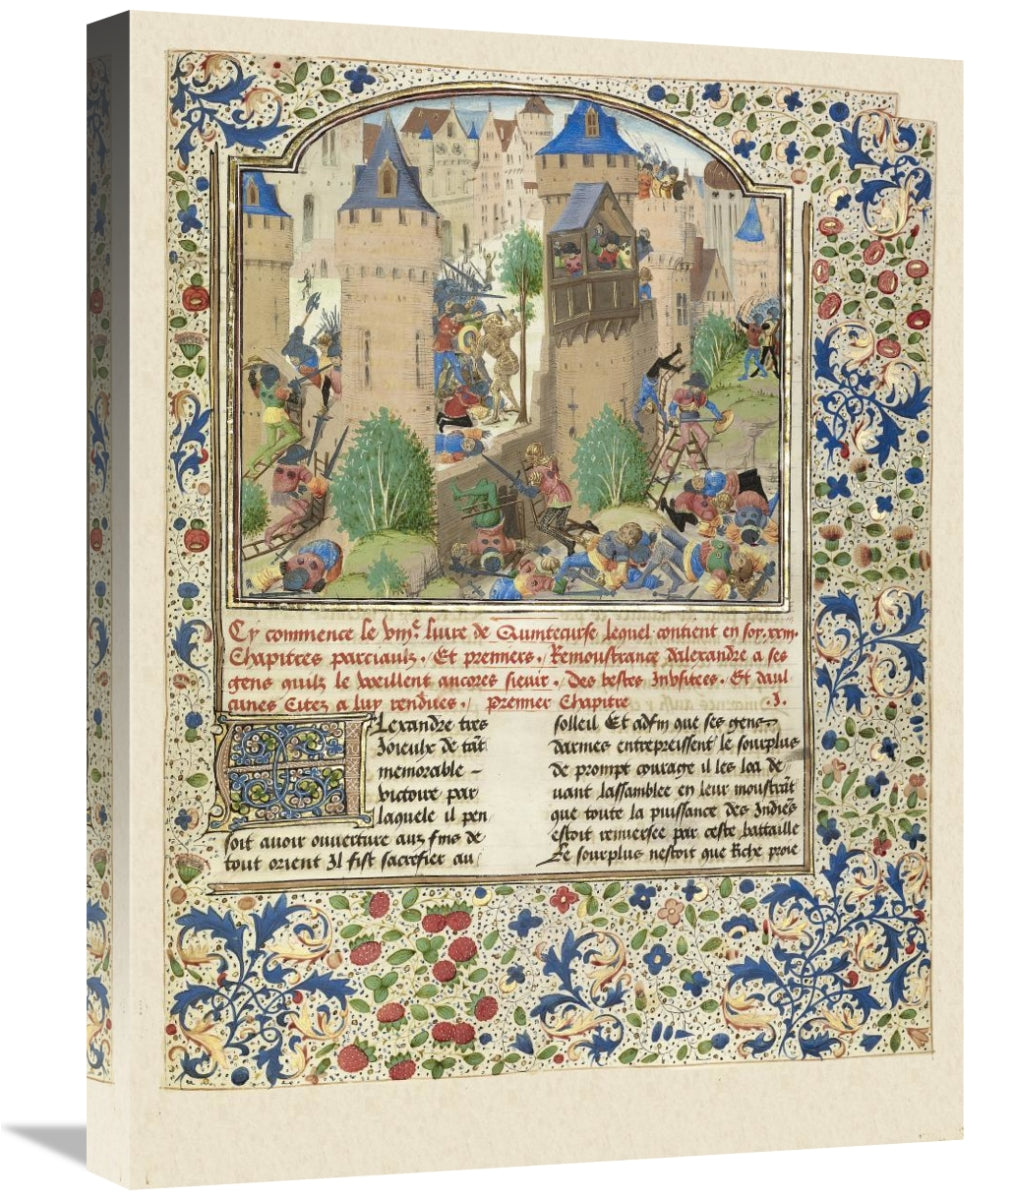 Cy commence le viiie. livre de Quintecurse lequel contient en soy. xxiii.
Chapitres parciaulz. Et premiers. Remoustrance dalexandre a ses
gens quilz le veillent ancores sieuir. Des bestes Invsitees. Et daul
cunes Citez a luy rendues. premier Chapitre .I.
Alexandre tres
Joieulx de tât
memorable –
victoire par
laquele il pen
soit auoir ouverture aux fins de
tout orient Il fist sacrefier au
solleil Et adfin que ses gens
darmes entrepreissent le sourplus
de prompt courage il les loa de
uant lassamblee en leur moustrât
que toute la puissance des Indiês
estoit renuersee par ceste battaille
Le sourplus nestoit que Riche proie